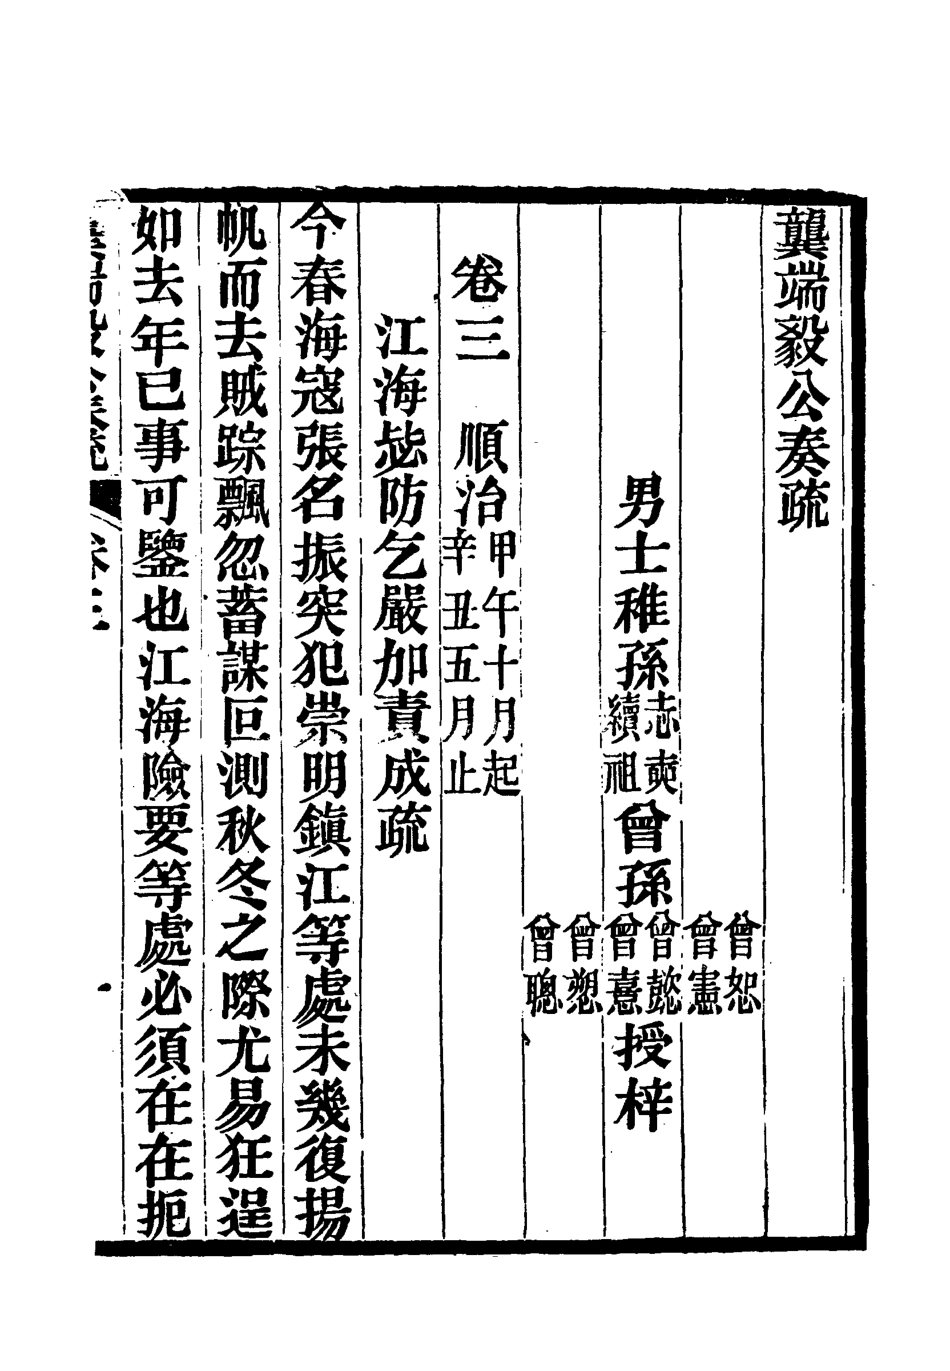 龔端毅公奏疏
曾恕
曾憲
男士稚孫志奭續祖曾孫曾懿曾憙授梓
曾愬
曾聰
卷三　順治甲午十月起辛丑五月止
江海毖防乞嚴加責成疏
今春海寇張名振突犯崇明鎮江等處未幾復揚
帆而去賊踪飄忽蓄謀叵測秋冬之際尤易狂逞
如去年已事可鑒也江海險要等處必須在在扼
卷三